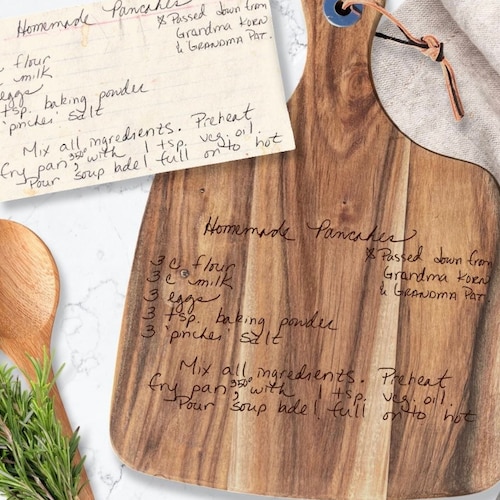 Homemade Pancakes
* Passed down from
Grandma Korn
& Grandma Pat.
c flour
milk
eggs
tsp. baking powder
'pinches' salt
Mix all ingredients. Preheat
fry pan 350° with 1 tsp. veg. oil.
Pour soup ladel full on to hot
Homemade Pancakes
* Passed down from
Grandma Korn
& Grandma Pat
3 c flour
3 c milk
3 eggs
3 tsp. baking powder
3 'pinches' salt
Mix all ingredients. Preheat
fry pan 350° with 1 tsp. veg. oil.
Pour soup ladel full on to hot